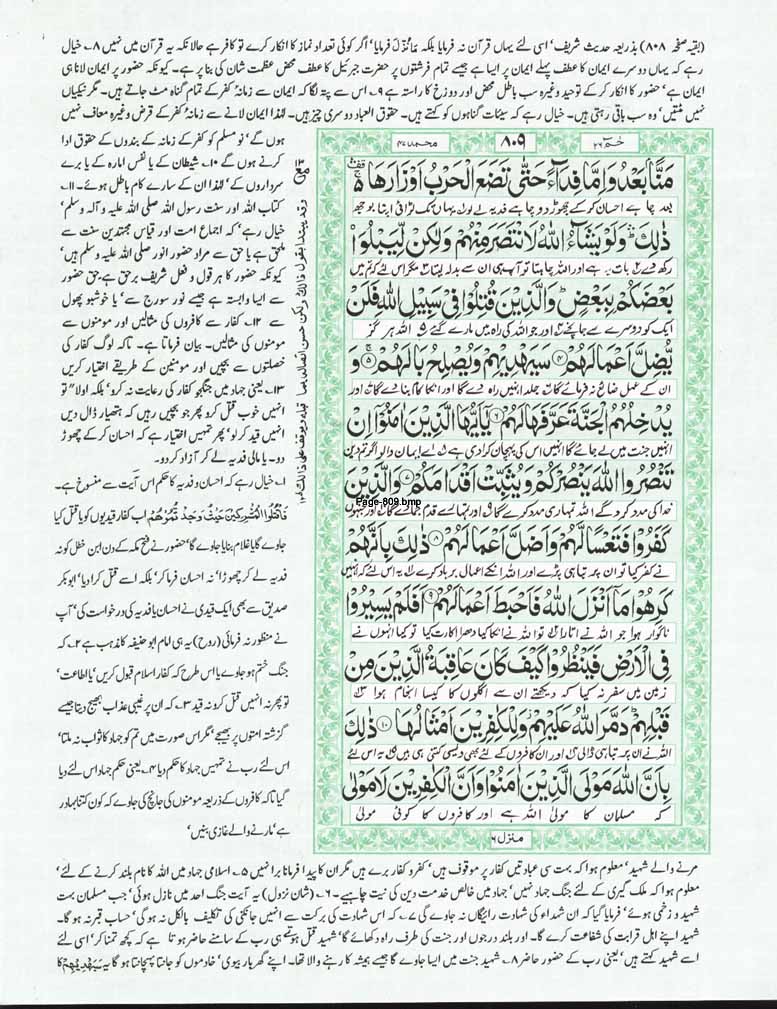 (بقیہ صفحہ ۸۰۸) بذریعہ حدیث شریف' اسی لئے یہاں قرآن نہ فرمایا بلکہ مَانُزِّلَ فرمایا' اگر کوئی تعداد نماز کا انکار کرے تو کافر ہے حالانکہ یہ قرآن میں نہیں ۸؎ خیال
رہے کہ یہاں دوسرے ایمان کا عطف پہلے ایمان پر ایسا ہے جیسے تمام فرشتوں پر حضرت جبرئیل کا عطف محض عظمت شان کی بنا پر ہے۔ کیونکہ حضور پر ایمان لانا ہی
ایمان ہے' حضور کا انکار کر کے توحید وغیرہ سب باطل محض اور دوزخ کا راستہ ہے ۹؎ اس سے پتہ لگا کہ ایمان سے زمانہ کفر کے تمام گناہ مٹ جاتے ہیں۔ مگر نیکیاں
نہیں مٹتیں' وہ سب باقی رہتی ہیں۔ خیال رہے کہ سیئات گناہوں کو کہتے ہیں۔ حقوق العباد دوسری چیز ہیں۔ لہٰذا ایمان لانے سے زمانہ کفر کے قرض وغیرہ معاف نہیں
ہوں گے' نو مسلم کو کفر کے زمانہ کے بندوں کے حقوق ادا
کرنے ہوں گے ۱۰؎ شیطان کے یا نفس امارہ کے یا برے
سرداروں کے' لہٰذا ان کے سارے کام باطل ہوئے۔ ۱۱؎
کتاب اللہ اور سنت رسول اللہ صلی اللہ علیہ و آلہ وسلم'
خیال رہے' کہ اجماع امت اور قیاس مجتہدین سنت سے
ملحق ہے یا حق سے مراد حضور انور صلی اللہ علیہ وسلم ہیں'
کیونکہ حضور کا ہر قول و فعل شریف برحق ہے حق حضور
سے ایسا وابستہ ہے جیسے نور سورج سے' یا خوشبو پھول
سے ۱۲؎ کفار سے کافروں کی مثالیں اور مومنوں سے
مومنوں کی مثالیں۔ بیان فرماتا ہے۔ تاکہ لوگ کفار کی
خصلتوں سے بچیں اور مومنین کے طریقے اختیار کریں
۱۳؎ یعنی جہاد میں جنگجو کفار کی رعایت نہ کرو' بلکہ اولاً تو
انہیں خوب قتل کرو پھر جو بچیں رہیں کہ ہتھیار ڈال دیں
انہیں قید کر لو' پھر تمہیں اختیار ہے کہ احسان کر کے چھوڑ
دو۔ یا مالی فدیہ لے کر آزاد کر دو۔
۱؎ خیال رہے کہ احسان و فدیہ کا حکم اس آیت سے منسوخ ہے۔
فَاقْتُلُوا الْمُشْرِكِيْنَ حَيْثُ وَجَدْتُّمُوْهُمْ اب کفار قیدیوں کو یا قتل کیا
جاوے گا یا غلام بنایا جاوے گا' حضور نے فتح مکہ کے دن ابن خطل کو نہ
فدیہ لے کر چھوڑا' نہ احسان فرما کر' بلکہ اسے قتل کرا دیا' ابوبکر
صدیق سے بھی ایک قیدی نے احسان یا فدیہ کی درخواست کی' آپ
نے منظور نہ فرمائی (روح) یہ ہی امام ابو حنیفہ کا مذہب ہے ۲؎ کہ
جنگ ختم ہو جاوے یا اس طرح کہ کفار اسلام قبول کریں' یا اطاعت'
تو پھر نہ انہیں قتل کرو نہ قید ۳؎ کہ ان پر غیبی عذاب بھیج دیتا جیسے
گزشتہ امتوں پر بھیجے' مگر اس صورت میں تم کو جہاد کا ثواب نہ ملتا'
اس لئے رب نے تمہیں جہاد کا حکم دیا ۴؎ یعنی حکم جہاد اس لئے دیا
گیا تاکہ کافروں کے ذریعہ مومنوں کی جانچ کی جاوے کہ کون کتنا بہادر
ہے' مارنے والے غازی بنیں'
حٰمٓ ۲۶
۸۰۹
محمد ۴۷
مَنًّۢا بَعْدُ وَ اِمَّا فِدَآءً حَتّٰى تَضَعَ الْحَرْبُ اَوْزَارَهَا
بعد چاہے احسان کر کے چھوڑ دو چاہے فدیہ لے لو یہاں تک لڑائی اپنا بوجھ
ذٰلِكَ وَ لَوْ يَشَآءُ اللّٰهُ لَانْتَصَرَ مِنْهُمْ وَ لٰكِنْ لِّيَبْلُوَا۟
رکھ دے بات یہ ہے اور اللہ چاہتا تو آپ ہی ان سے بدلہ لیتا مگر اس لئے کہ تم میں
بَعْضَكُمْ بِبَعْضٍ وَ الَّذِيْنَ قُتِلُوْا فِيْ سَبِيْلِ اللّٰهِ فَلَنْ
ایک کو دوسرے سے جانچے اور جو اللہ کی راہ میں مارے گئے اللہ ہر گز
يُّضِلَّ اَعْمَالَهُمْ ۴ سَيَهْدِيْهِمْ وَ يُصْلِحُ بَالَهُمْ ۵ وَ
ان کے عمل ضائع نہ فرمائے گا جلد انہیں راہ دے گا اور ان کا کام بنا دے گا اور
يُدْخِلُهُمُ الْجَنَّةَ عَرَّفَهَا لَهُمْ ۶ يٰۤاَيُّهَا الَّذِيْنَ اٰمَنُوْۤا اِنْ
انہیں جنت میں لے جائے گا انہیں اس کی پہچان کرا دی ہے اے ایمان والو اگر تم دین
تَنْصُرُوا اللّٰهَ يَنْصُرْكُمْ وَ يُثَبِّتْ اَقْدَامَكُمْ ۷ وَ الَّذِيْنَ
Page-809.bmp
خدا کی مدد کرو گے اللہ تمہاری مدد کرے گا اور تمہارے قدم جما دے گا اور جنہوں
كَفَرُوْا فَتَعْسًا لَّهُمْ وَ اَضَلَّ اَعْمَالَهُمْ ۸ ذٰلِكَ بِاَنَّهُمْ
نے کفر کیا تو ان پر تباہی پڑے اور اللہ ان کے اعمال برباد کرے یہ اس لئے کہ انہیں
كَرِهُوْا مَاۤ اَنْزَلَ اللّٰهُ فَاَحْبَطَ اَعْمَالَهُمْ ۹ اَفَلَمْ يَسِيْرُوْا
ناگوار ہوا جو اللہ نے اتارا تو اللہ نے ان کا کیا دھرا اکارت کیا تو کیا انہوں نے
فِي الْاَرْضِ فَيَنْظُرُوْا كَيْفَ كَانَ عَاقِبَةُ الَّذِيْنَ مِنْ
زمین میں سفر نہ کیا کہ دیکھتے ان سے اگلوں کا کیسا انجام ہوا
قَبْلِهِمْ دَمَّرَ اللّٰهُ عَلَيْهِمْ وَ لِلْكٰفِرِيْنَ اَمْثَالُهَا ۱۰ ذٰلِكَ
اللہ نے ان پر تباہی ڈالی اور ان کافروں کے لئے بھی ویسی کتنی ہی ہیں یہ اس لئے
بِاَنَّ اللّٰهَ مَوْلَى الَّذِيْنَ اٰمَنُوْا وَ اَنَّ الْكٰفِرِيْنَ لَا مَوْلٰى
کہ مسلمان کا مولیٰ اللہ ہے اور کافروں کا کوئی مولیٰ
منزل ۶
مرنے والے شہید' معلوم ہوا کہ بہت سی عبادتیں کفار پر موقوف ہیں' کفر و کفار برے ہیں مگر ان کا پیدا فرمانا برا نہیں ۵؎ اسلامی جہاد میں اللہ کا نام بلند کرنے کے لئے'
معلوم ہوا کہ ملک گیری کے لئے جنگ جہاد نہیں' جہاد میں خالص خدمت دین کی نیت چاہیے۔ ۶؎ (شان نزول) یہ آیت جنگ احد میں نازل ہوئی' جب مسلمان بہت
شہید و زخمی ہوئے' فرمایا گیا کہ ان شہداء کی شہادت رائیگاں نہ جاوے گی ۷؎ کہ اس شہادت کی برکت سے انہیں جانکنی کی تکلیف بالکل نہ ہوگی' حساب قبر نہ ہو گا۔
شہید اپنے اہل قرابت کی شفاعت کرے گا۔ اور بلند درجوں اور جنت کی طرف راہ دکھائے گا' شہید قتل ہوتے ہی رب کے سامنے حاضر ہوتا ہے کہ کچھ تمنا کر' اسی لئے
اسے شہید کہتے ہیں' یعنی رب کے حضور حاضر ۸؎ شہید جنت میں ایسا جاوے گا جیسے ہمیشہ کا رہنے والا تھا۔ اپنے گھر بار بیوی' خادموں کو جانتا پہچانتا ہو گا یہ سَيَهْدِيْهِمْ کا